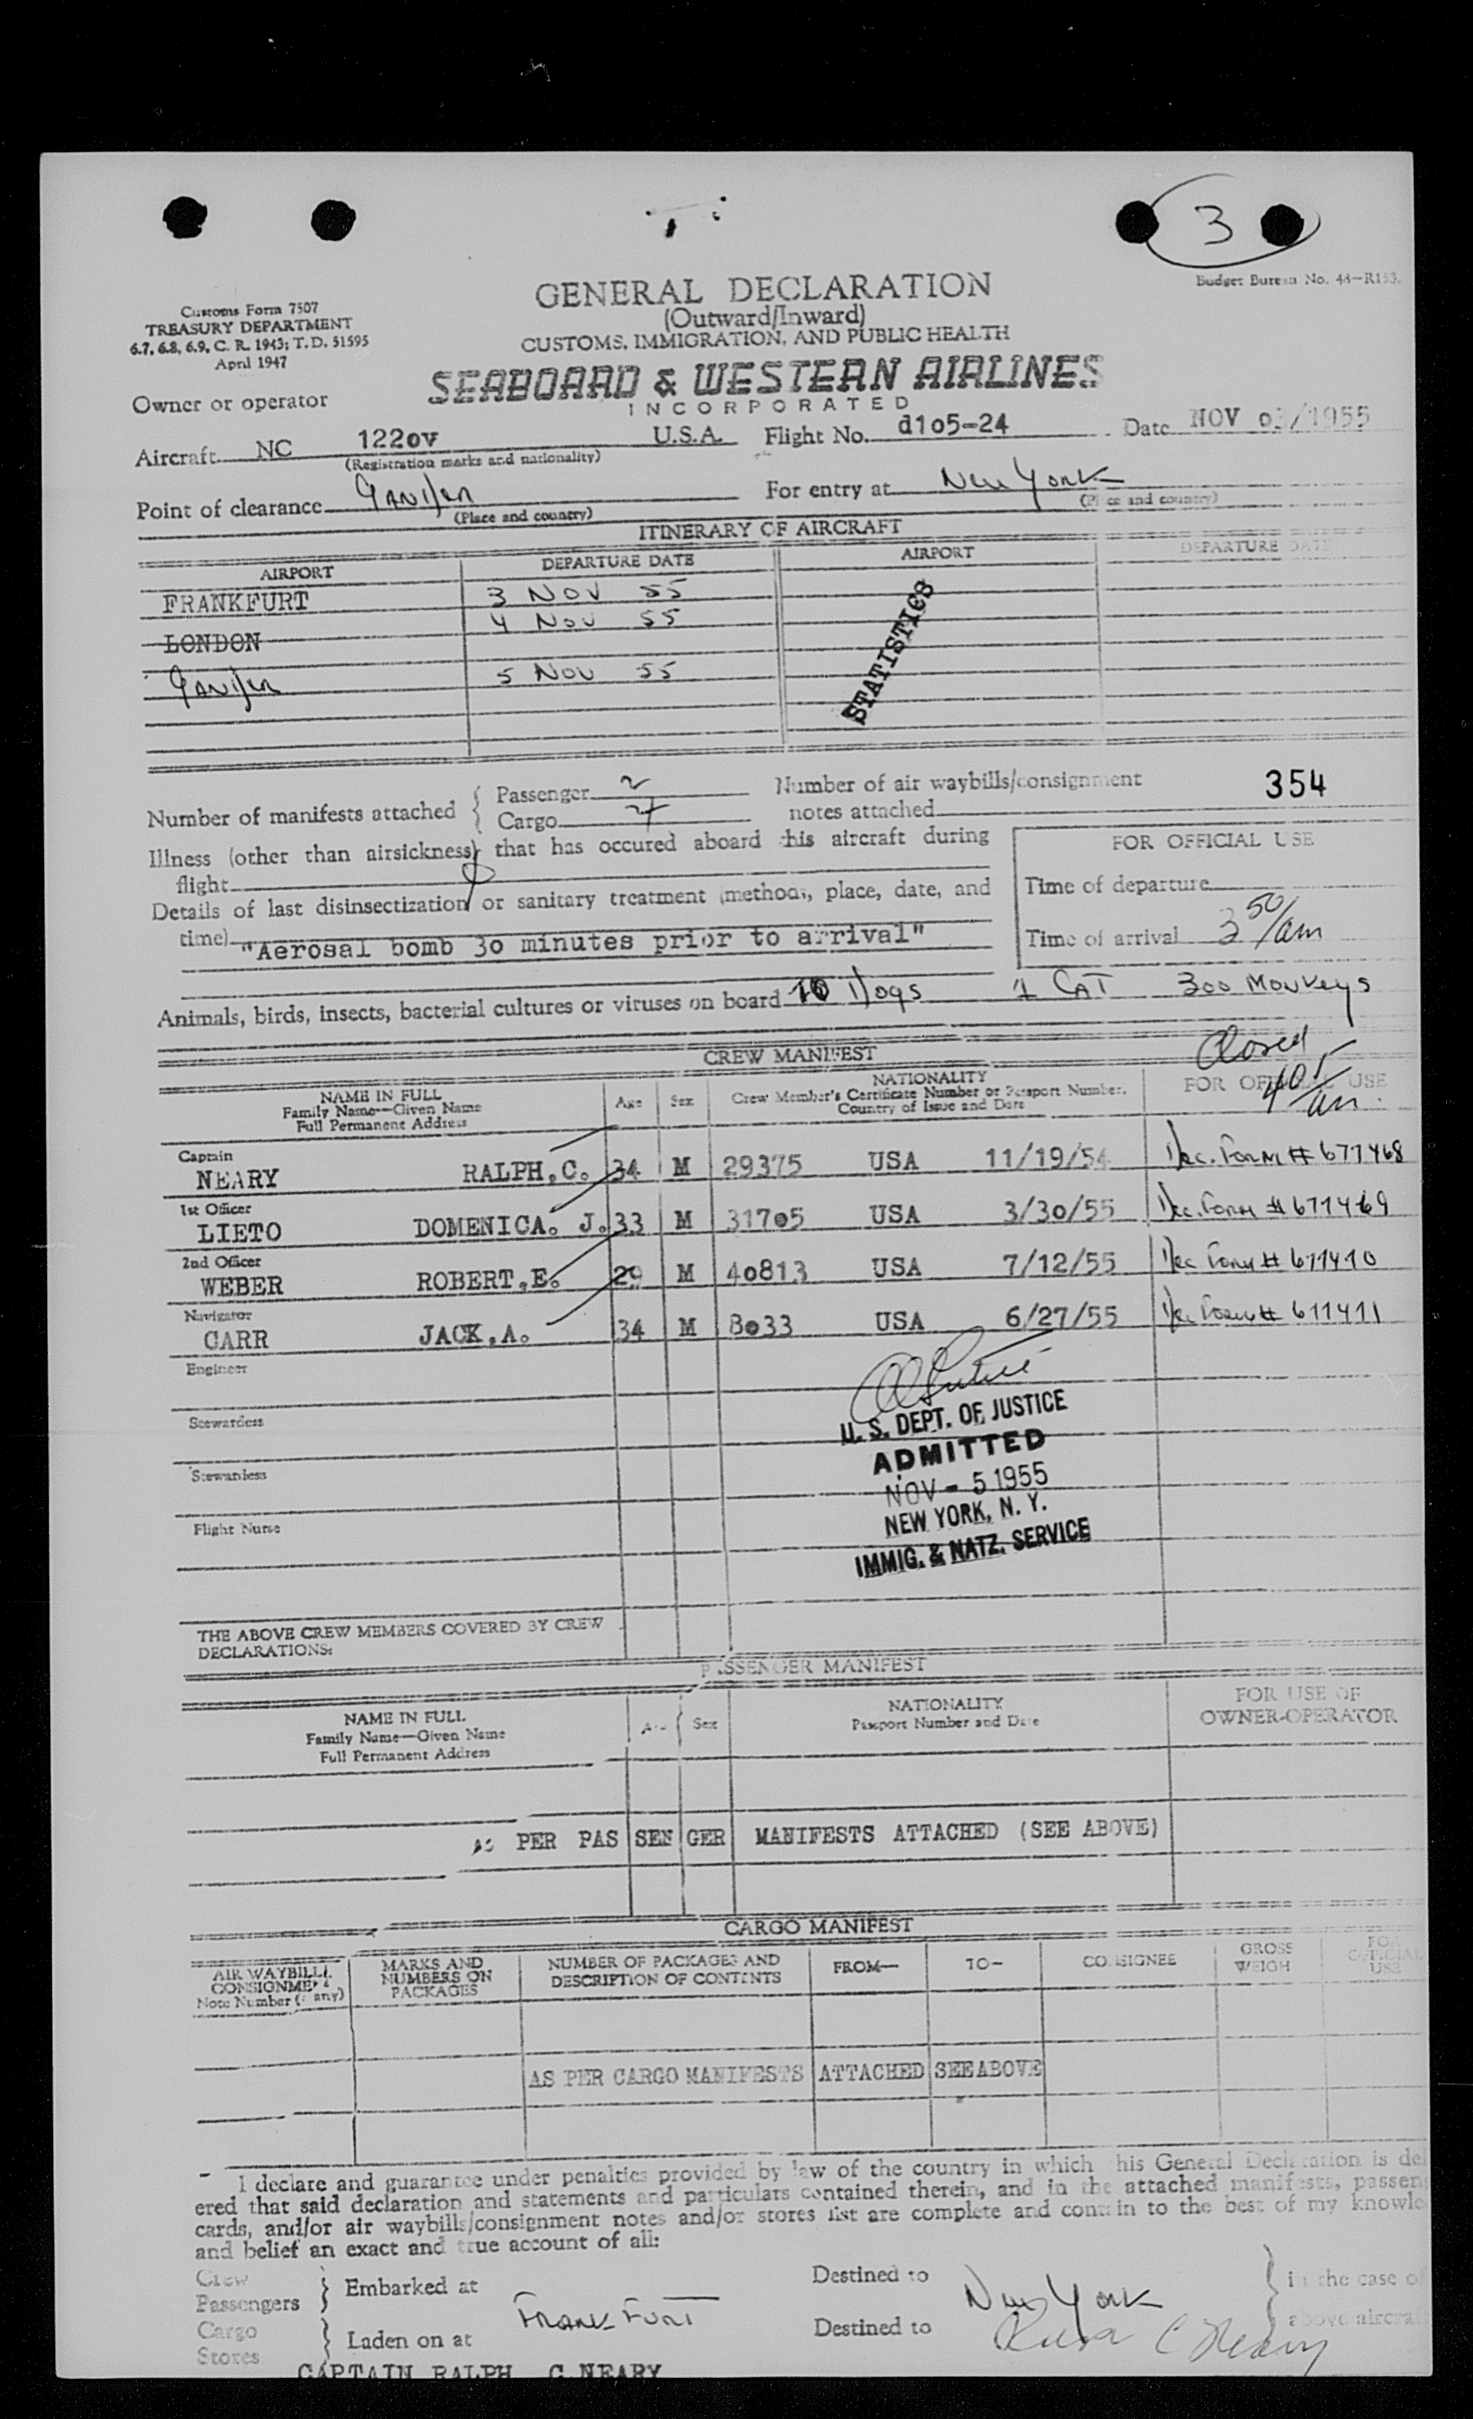 3
Budget Bureau No. 48—R153.
Customs Form 7507
TREASURY DEPARTMENT
6.7, 6.8, 6.9, C. R. 1943; T. D. 51595
April 1947
GENERAL DECLARATION
(Outward/Inward)
CUSTOMS, IMMIGRATION, AND PUBLIC HEALTH
Owner or operator
SEABOARD & WESTERN AIRLINES
INCORPORATED
Aircraft NC 122ov U.S.A. Flight No. d1o5-24 Date NOV 1955
(Registration marks and nationality)
Point of clearance For entry at New York
(Place and country) (Place and country)
ITINERARY OF AIRCRAFT
AIRPORT DEPARTURE DATE AIRPORT DEPARTURE DATE
FRANKFURT 3 NOV 55
LONDON 4 NOV 55
5 NOV 55
STATISTICS
Number of manifests attached { Passenger 2 Number of air waybills/consignment
Cargo notes attached 354
Illness (other than airsickness) that has occured aboard this aircraft during
flight
Details of last disinsectization or sanitary treatment (method, place, date, and
time) "Aerosal bomb 3o minutes prior to arrival"
FOR OFFICIAL USE
Time of departure
Time of arrival 3 50/am
Animals, birds, insects, bacterial cultures or viruses on board 10 Dogs 1 CAT 300 Monkeys
CREW MANIFEST
Closed
405/am.
NAME IN FULL
Family Name—Given Name
Full Permanent Address
Age Sex
NATIONALITY
Crew Member's Certificate Number or Passport Number.
Country of Issue and Date
FOR OFFICIAL USE
Captain
NEARY RALPH,C. 34 M 29375 USA 11/19/54 Dec. Form # 677468
1st Officer
LIETO DOMENICA. J. 33 M 317o5 USA 3/30/55 Dec. Form # 677469
2nd Officer
WEBER ROBERT,E. 29 M 4o813 USA 7/12/55 Dec Form # 677470
Navigator
CARR JACK,A. 34 M 8o33 USA 6/27/55 Dec Form # 677471
Engineer
Stewardess
Stewardess
Flight Nurse
U. S. DEPT. OF JUSTICE
ADMITTED
NOV - 5 1955
NEW YORK, N. Y.
IMMIG. & NATZ. SERVICE
THE ABOVE CREW MEMBERS COVERED BY CREW
DECLARATIONS:
PASSENGER MANIFEST
NAME IN FULL
Family Name—Given Name
Full Permanent Address
Age Sex
NATIONALITY
Passport Number and Date
FOR USE OF
OWNER-OPERATOR
AS PER PAS SEN GER MANIFESTS ATTACHED (SEE ABOVE)
CARGO MANIFEST
AIR WAYBILL/
CONSIGNMENT
Note Number (if any)
MARKS AND
NUMBERS ON
PACKAGES
NUMBER OF PACKAGES AND
DESCRIPTION OF CONTENTS
FROM— TO— CONSIGNEE
GROSS
WEIGH
FOR
OFFICIAL
USE
AS PER CARGO MANIFESTS ATTACHED SEE ABOVE
I declare and guarantee under penalties provided by law of the country in which this General Declaration is del
ered that said declaration and statements and particulars contained therein, and in the attached manifests, passen
cards, and/or air waybills/consignment notes and/or stores list are complete and contain to the best of my knowle
and belief an exact and true account of all:
Crew
Passengers } Embarked at Destined to
Frankfurt New York } in the case of
Cargo
Stores } Laden on at Destined to above aircraf
CAPTAIN RALPH C NEARY